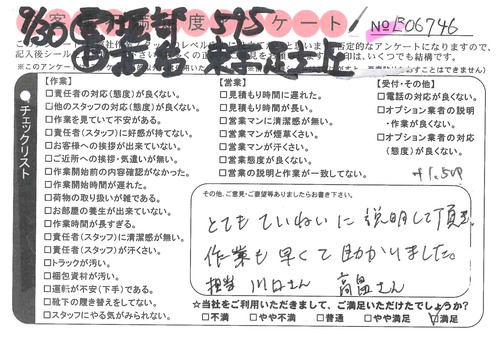 9/30
595
度
ケート
No E06746
【作業】
□責任者の対応(態度)が良くない。
□他のスタッフの対応(態度)が良くない。
□作業を見ていて不安がある。
□責任者(スタッフ)に好感が持てない。
□お客様への挨拶が出来ていない。
□ご近所への挨拶・気遣いが無い。
□作業開始前の内容確認がなかった。
□作業開始時間が遅れた。
□荷物の取り扱いが雑である。
□お部屋の養生が出来ていない。
□作業時間が長すぎる。
□責任者(スタッフ)に清潔感が無い。
□責任者(スタッフ)が汗くさい。
□トラックが汚い。
□梱包資材が汚い。
□運転が不安(下手)である。
□靴下の履き替えをしてない。
□スタッフにやる気がみられない。
チェックリスト
【営業】
□見積もり時間に遅れた。
□見積もり時間が長い。
□営業マンに清潔感が無い。
□営業マンが煙草くさい。
□営業マンが汗くさい。
□営業態度が良くない。
□営業の説明と作業が一致してない。
【受付・その他】
□電話の対応が良くない。
□オプション業者の説明
・作業が良くない。
□オプション業者の対応
(態度)が良くない。
その他、ご意見・ご要望等ありましたらお書き下さい。
とてもていねいに説明して頂き
作業も早くて助かりました。
担当 川口さん 高畠さん
☆当社をご利用いただきまして、ご満足いただけたでしょうか?
□不満 □やや不満 □普通 □やや満足 □満足